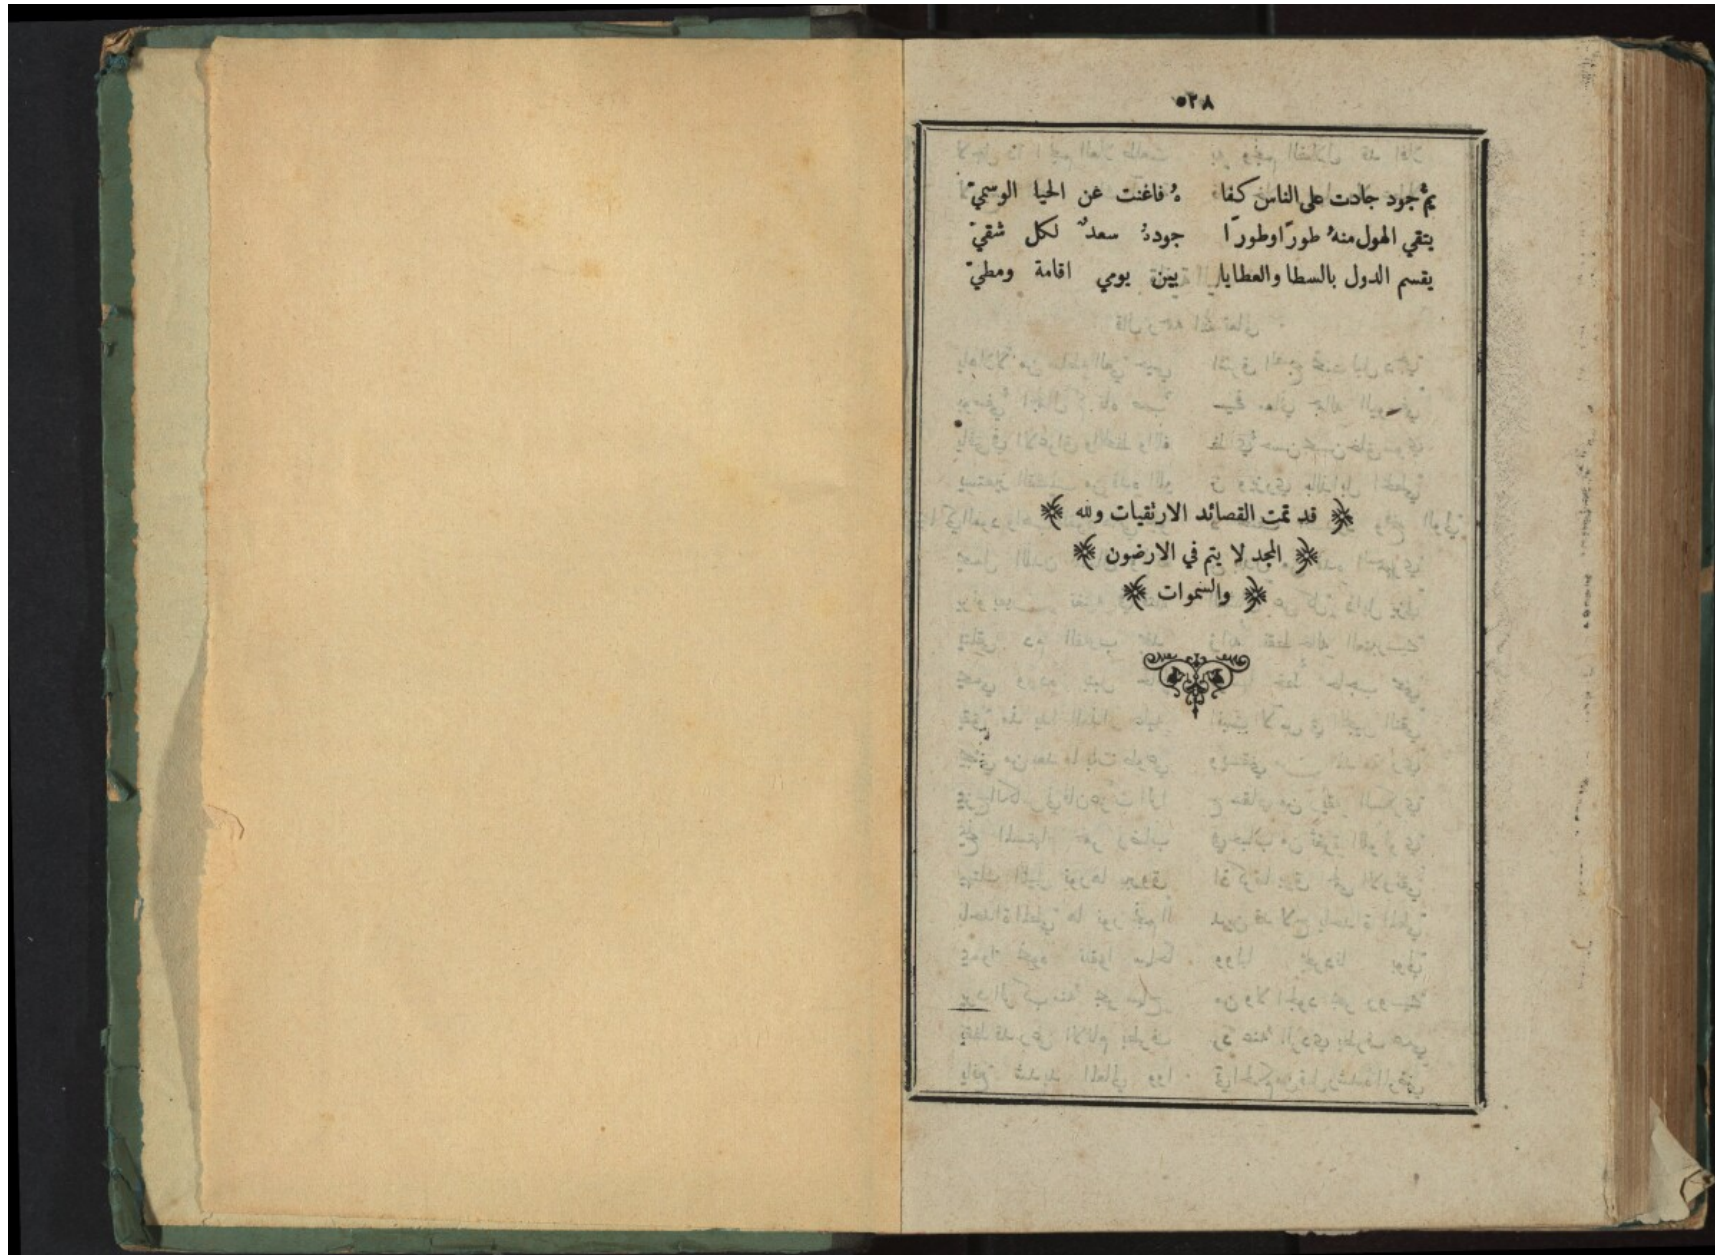 ٥٢٨
يمُّ جود جادت على الناس كفا هُ فاغنت عن الحيا الوسميّ
يتقي الهول منهُ طورًا وطورًا جودهُ سعدٌ لكل شقيّ
يقسم الدول بالسطا والعطايا بين يومي اقامة ومطيّ
قد تمت القصائد الارتقيات ولله
المجد لا يتم في الارضون
والسموات